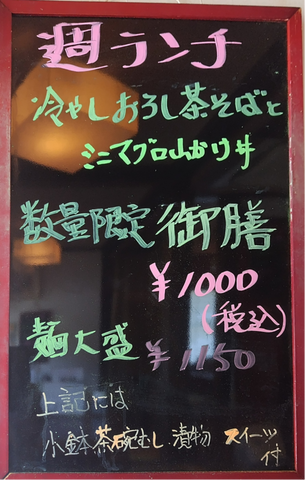 週ランチ
冷やしおろし茶そばと
ミニマグロ山かけ丼
数量限定 御膳
¥1000
(税込)
麺大盛 ¥1150
上記には
小鉢 茶碗むし 漬物 スイーツ
付